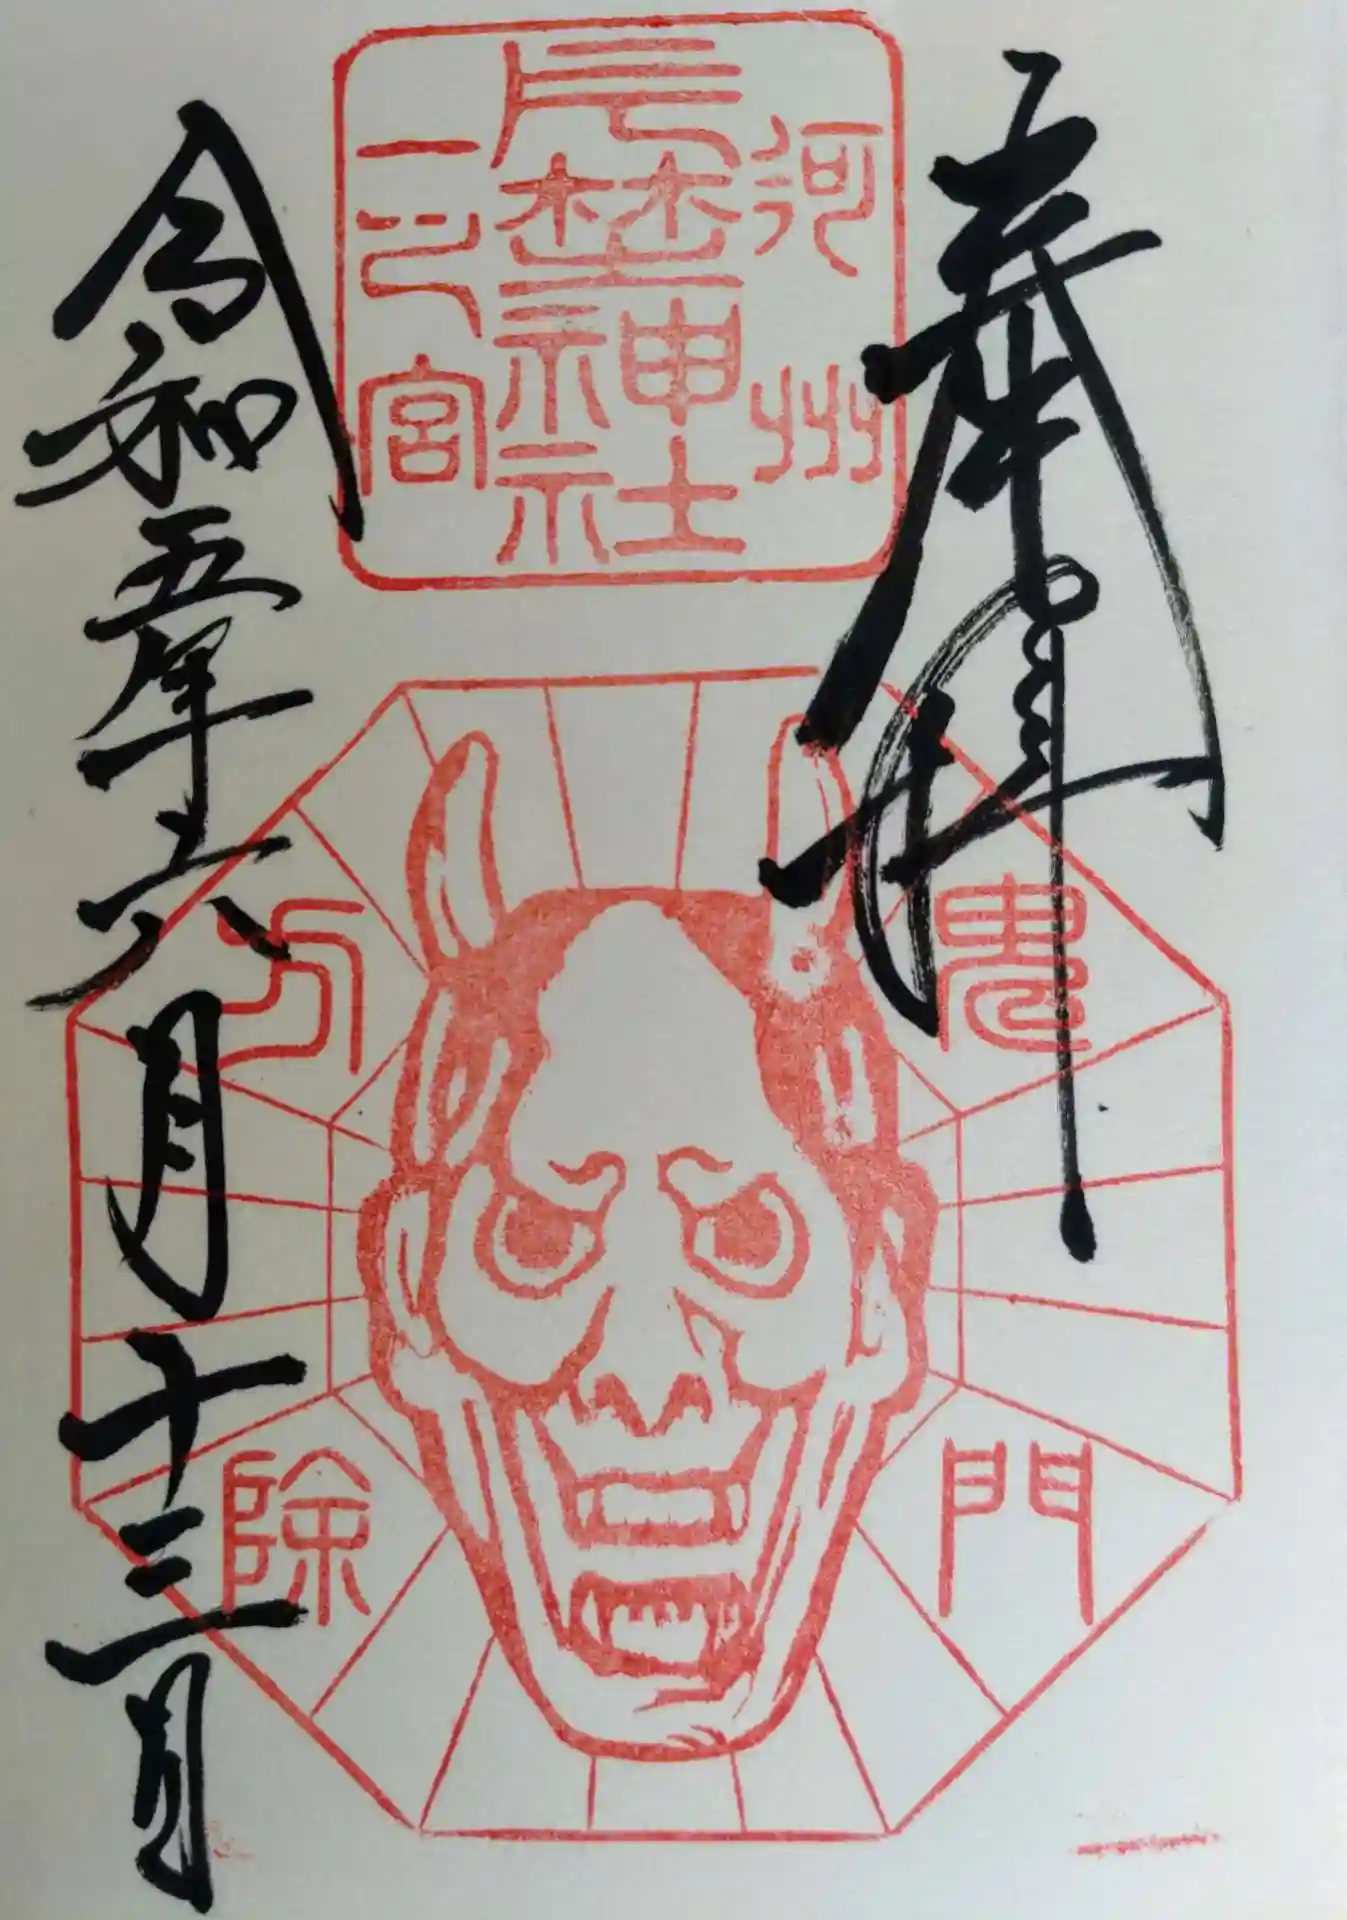 奉拝
河州
片埜神社
一之宮
鬼門
方除
令和五年六月十三日